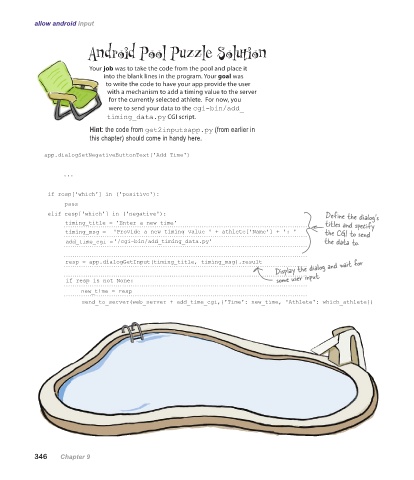 allow android input
Android Pool Puzzle Solution
Your job was to take the code from the pool and place it
into the blank lines in the program. Your goal was
to write the code to have your app provide the user
with a mechanism to add a timing value to the server
for the currently selected athlete. For now, you
were to send your data to the cgi-bin/add_
timing_data.py CGI script.
Hint: the code from get2inputsapp.py (from earlier in
this chapter) should come in handy here.
app.dialogSetNegativeButtonText('Add Time')
...
if resp['which'] in ('positive'):
pass
elif resp['which'] in ('negative'):
timing_title = 'Enter a new time'
timing_msg = 'Provide a new timing value ' + athlete['Name'] + ': '
add_time_cgi = '/cgi-bin/add_timing_data.py'
Define the dialog's
titles and specify
the CGI to send
the data to.
resp = app.dialogGetInput(timing_title, timing_msg).result
Display the dialog and wait for
some user input.
if resp is not None:
new_time = resp
send_to_server(web_server + add_time_cgi,{'Time': new_time, 'Athlete': which_athlete})
346 Chapter 9